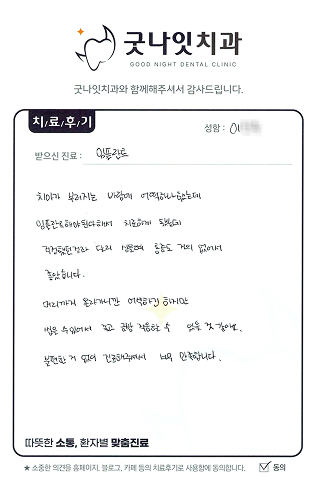 굿나잇치과
GOOD NIGHT DENTAL CLINIC
굿나잇치과와 함께해주셔서 감사드립니다.
치/료/후/기
성함 : 이
받으신 진료 : 임플란트
치아가 부러지는 바람에 어떡하나싶었는데
임플란트해야된다해서 치료하게 되었는데
걱정했던것과 다르게 통증도 거의 없어서
좋았습니다.
머리까지 올라가니깐 어색하긴 하지만
씹을 수있어서 좋고 금방 적응할 수 있을 것 같아요.
불편한 거 없이 진료해주셔서 너무 만족합니다.
따뜻한 소통, 환자별 맞춤진료
★ 소중한 의견을 홈페이지, 블로그, 카페 등의 치료후기로 사용함에 동의합니다. 동의